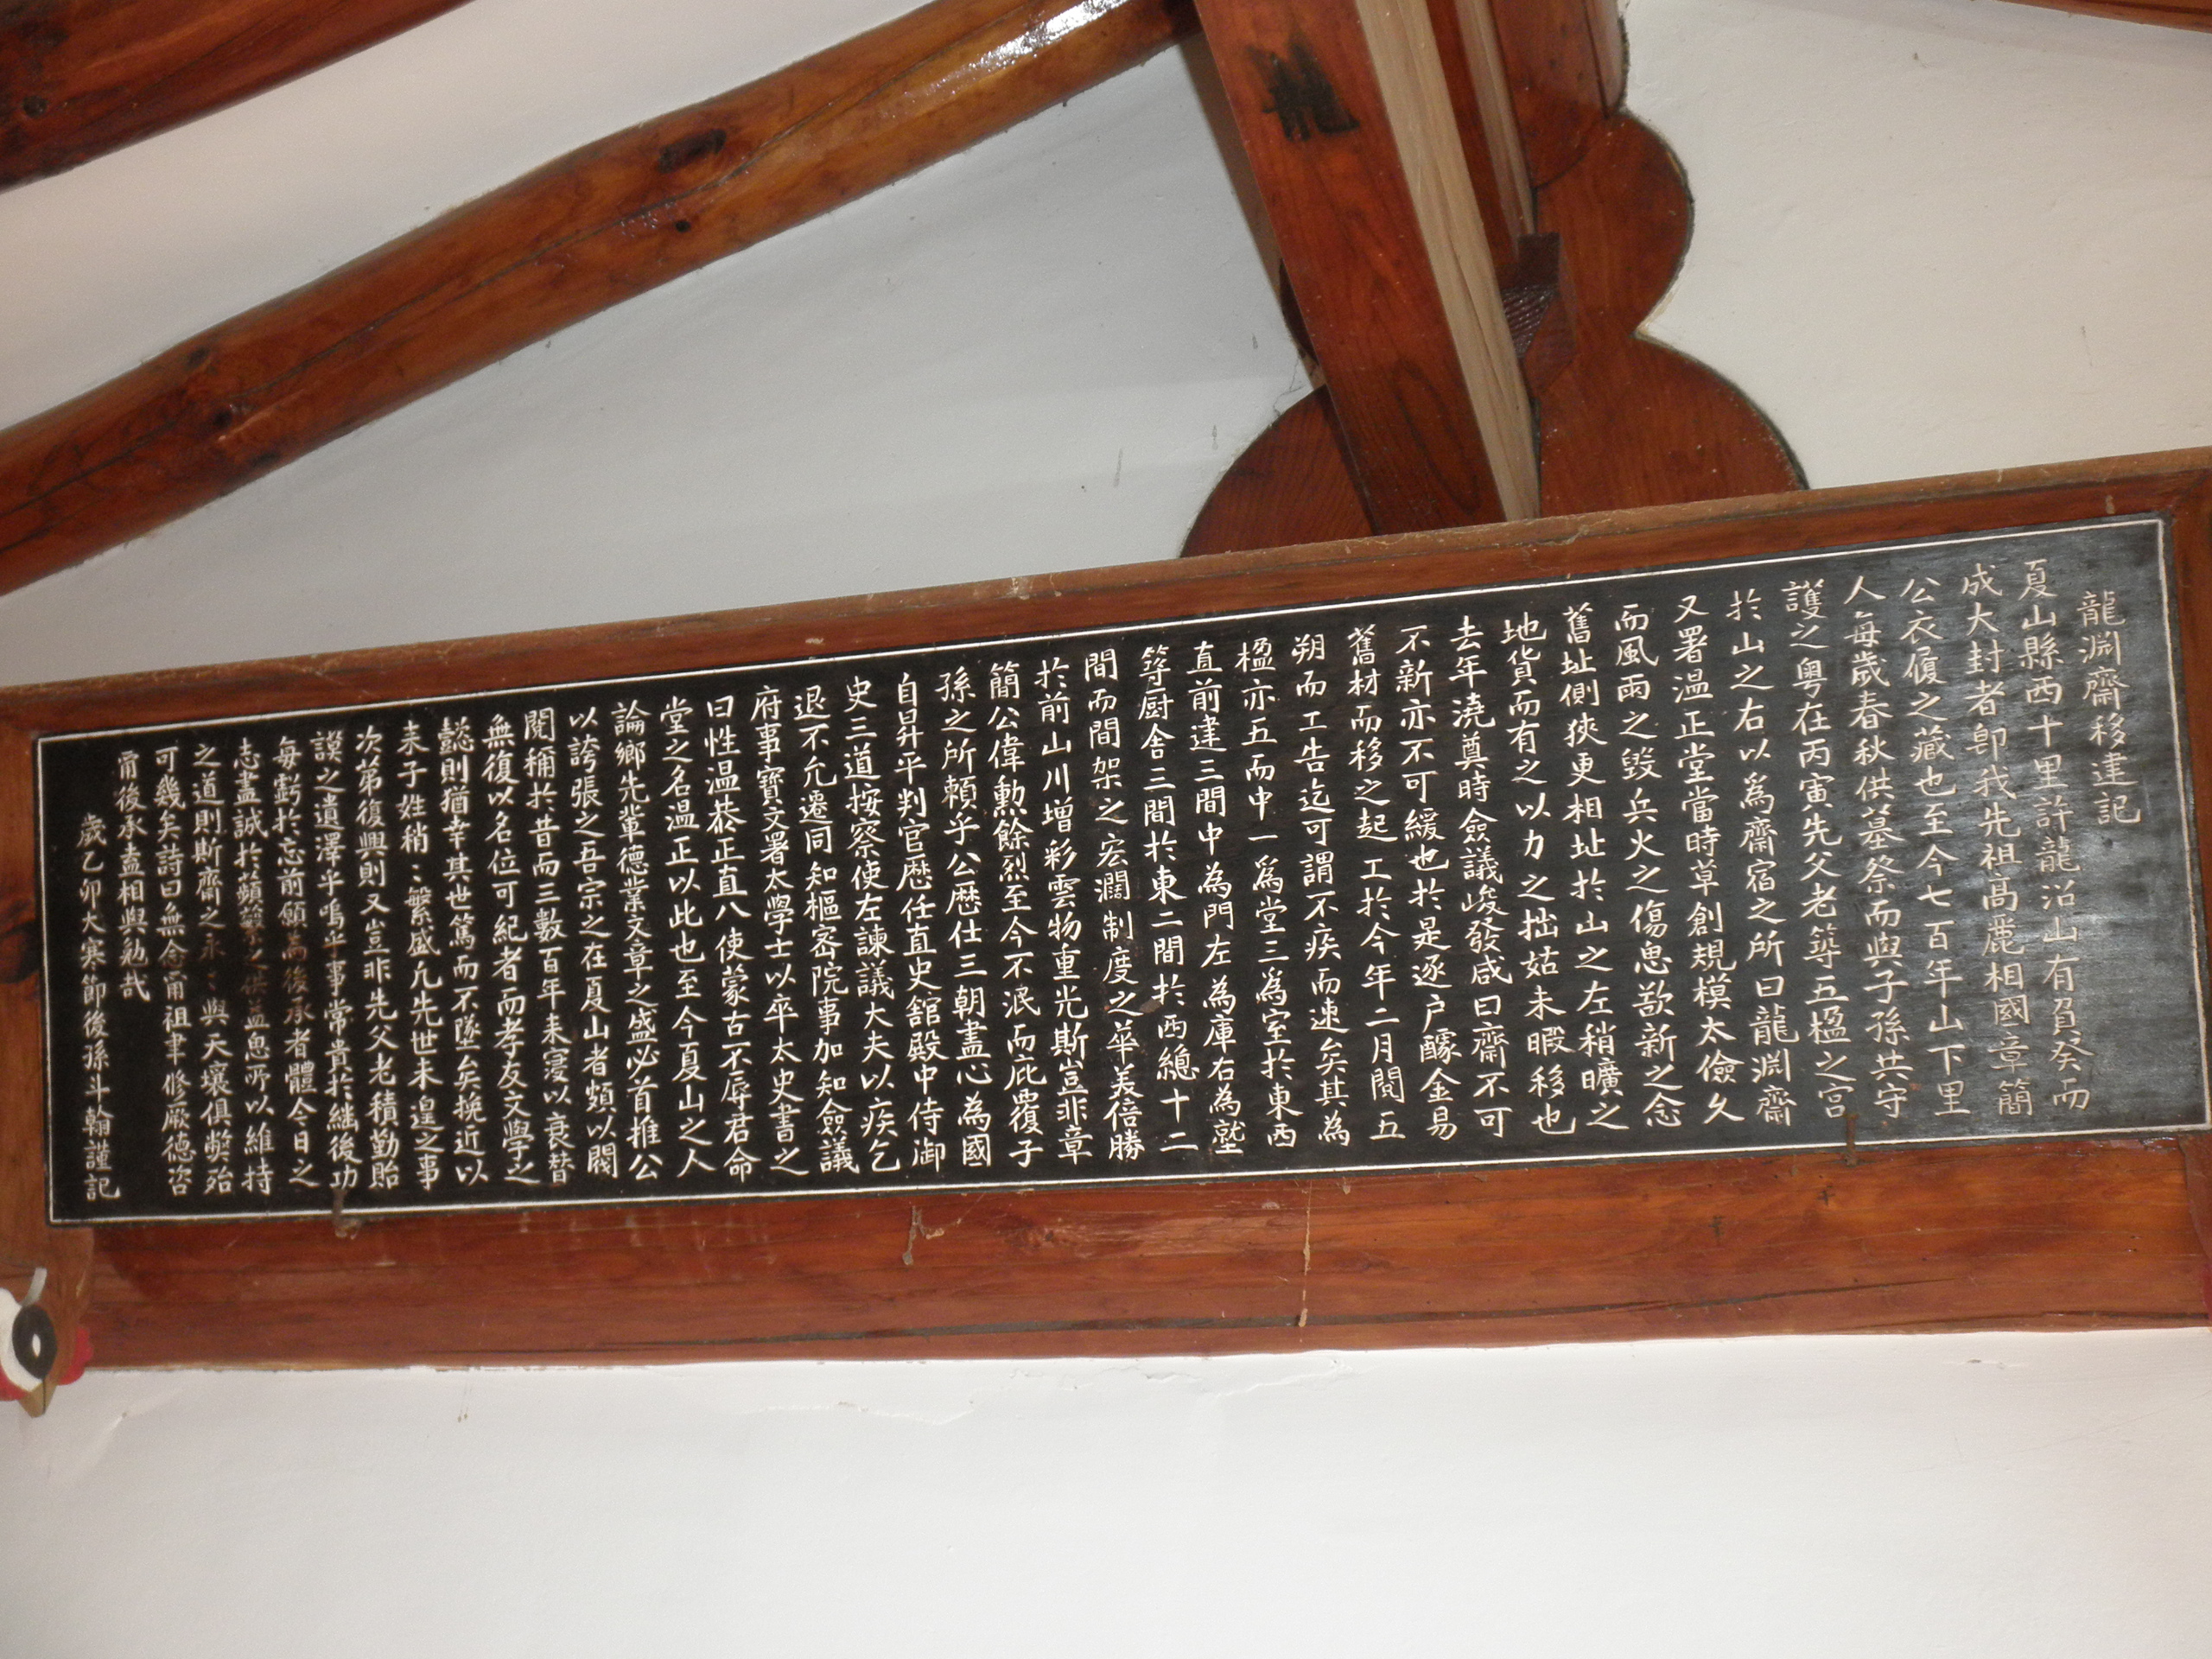 龍淵齋移建記
夏山縣西十里許龍沼山有負癸而
成大封者卽我先祖高麗相國章簡
公衣履之藏也至今七百年山下里
人每歲春秋供墓祭而與子孫共守
護之粤在丙寅先父老等五楹之宮
於山之右以爲齋宿之所曰龍淵齋
又署溫正堂當時草創規模太儉久
而風雨之毀兵火之傷思欲新之念
舊址側狹更相址於山之左稍曠之
地貨而有之以力之拙姑未暇移也
去年澆奠時僉議峻發咸曰齋不可
不新亦不可緩也於是逐戶醵金易
舊材而移之起工於今年二月閱五
朔而工告迄可謂不疾而速矣其為
楹亦五而中一爲堂三爲室於東西
直前建三間中為門左為庫右為塾
等厨舍三間於東二間於西總十二
間而間架之宏濶制度之華美倍勝
於前山川增彩雲物重光斯豈非章
簡公偉勳餘烈至今不泯而庇覆子
孫之所賴乎公歴仕三朝盡心為國
自昇平判官歴任直史舘殿中侍御
史三道按察使左諫議大夫以疾乞
退不允遷同知樞密院事加知僉議
府事寶文署太學士以卒太史書之
曰性溫恭正直八使蒙古不辱君命
堂之名溫正以此也至今夏山之人
論鄕先輩德業文章之盛必首推公
以誇張之吾宗之在夏山者頗以閥
閱稱於昔而三數百年来寖以衰替
無復以名位可紀者而孝友文學之
懿則猶幸其世篤而不墜矣挽近以
来子姓稍〻繁盛凡先世未遑之事
次第復興則又豈非先父老積勤貽
謨之遺澤乎嗚乎事常貴於繼後功
每虧於忘前願為後承者體今日之
志盡誠於蘋蘩之供益思所以維持
之道則斯齋之永〻與天壤俱弊殆
可幾矣詩曰無念甯祖聿修厥德咨
甯後承盍相與勉哉
歲乙卯大寒節後孫斗翰謹記
龍